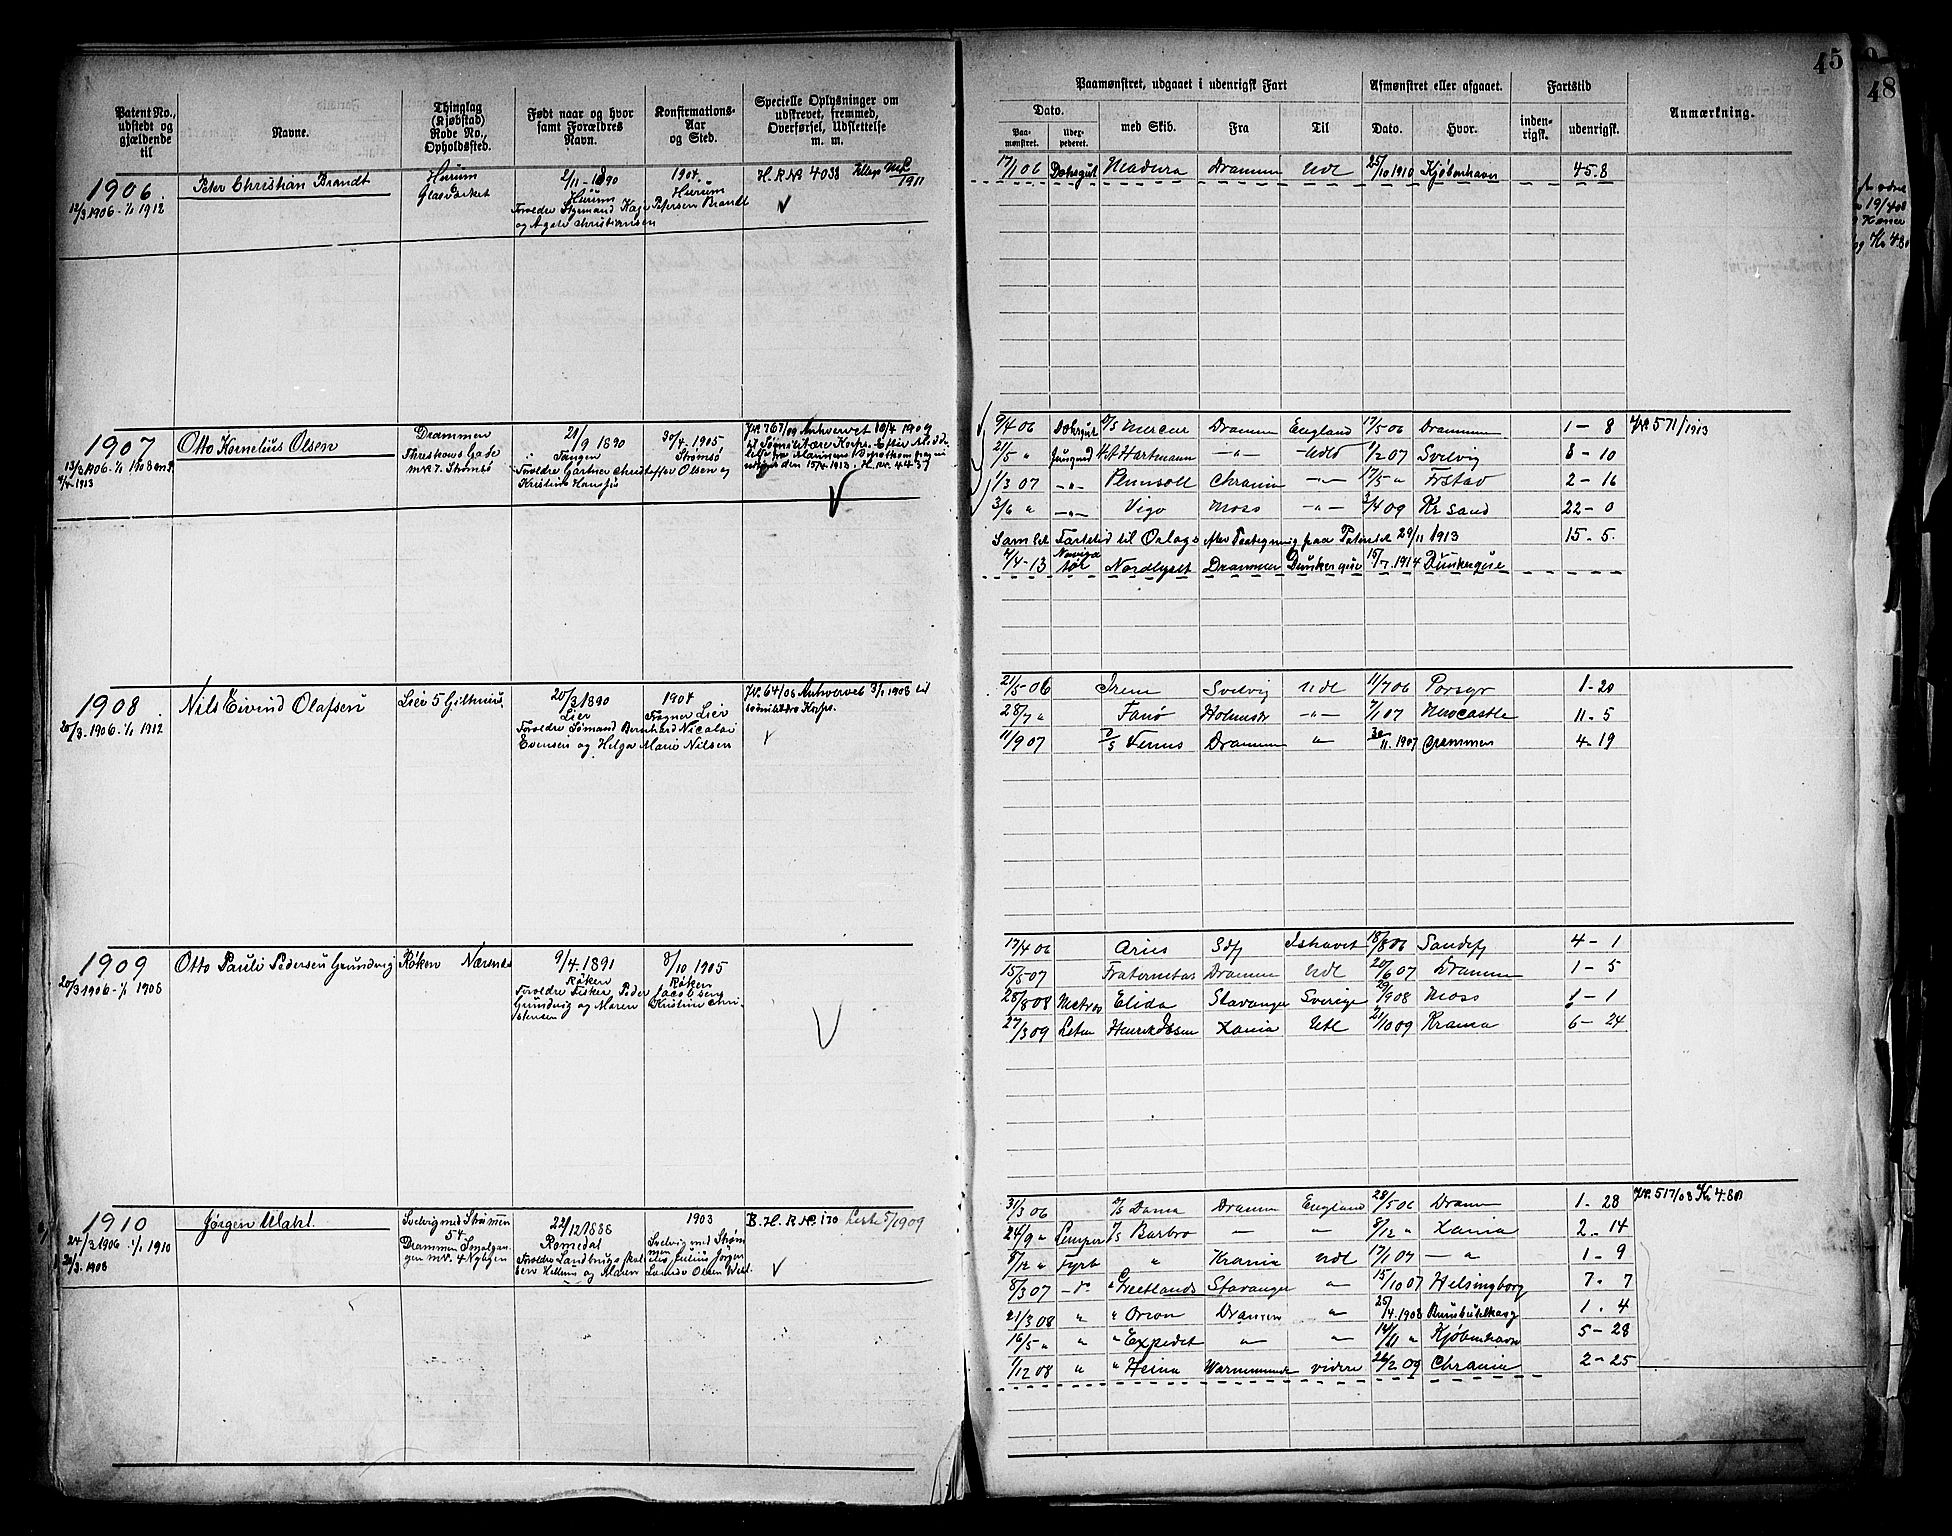 45
48
Patent No., udstedt og gjældende til
Navne.
Thinglag (Kjøbstad) Rode No., Opholdssted.
Født naar og hvor samt Forældres Navn.
Konfirmations-Aar og Sted.
Specielle Oplysninger om udskrevet, fremmed, Overførsel, Udslettelse m. m.
Paamønstret, udgaaet i udenrigsk Fart
Afmønstret eller afgaaet.
Fartstid
Anmærkning.
Dato.
Paamønstret.
med Skib.
Fra
Til
Dato.
Hvor.
indenrigsk.
udenrigsk.
1906
12/3 1906 - 1/1 1912.
Peter Christian Brandt
Hurum
Glasværket
2/11 - 1890
Hurum
Forældre Styrmand Kaje Petersen Brandt
og Agate Christiansen
1904.
Hurum
H. R. No 4038
1911
17/1 06 Madeira Drammen Udl 25/10 1910 Kjøbenhavn 45.8
1907
13/3 1906 - 1/1 1908
1913
Otto Kornelius Olsen
Drammen
Threskows Gade
mk 7. Strømsø
21/9 1890
Tangen
Forældre Gartner Christoffer Olsen og
Kristine Hansen
30/4. 1905
Strømsø
Jr. 767/09 Anhvervet 10/4 1909
til Sømilitære Korps. Efter
den 15/4 1913. H. nr. 4437
9/4 06 D/S Mercur Drammen England 17/5 06 Drammen 1 - 8 Jr. 571/1913
21/5 " Jungmd Hartmann - " - Udl 1/2 07 Svelvig 8 - 10
1/3 07 - " - Plimsoll Chrania - " - 17/5 " Frstad 2 - 16
3/6 " - " - Vigo Moss - " - 3/4 09 Kr. sand 22 - 0
Samlet Fartstid til Orlogs paa Patentet 29/11 1913 15 - 5.
4/4 - 13 Nordlyset Drammen Dunkerque 15/7. 1914 Dunkerque
1908
20/3. 1906 - 1/1 1912
Nils Eivind Olafsen
Lier 5 Gilhus
20/3 1890
Lier
Forældre Sømand Bernhard Nicolai
Evensen og Helga Marie Nilsen
1904
Frogner Lier
Jr. 64/08 Anhvervet 3/1 1908 til
sømilitære Korps.
21/5 06 Irene Svelvig Udl 11/7 06 Porsgr 1 - 20
28/7 " Fanø Holmestr - " - 7/1 07 Newcastle 11 - 5
11/9 07 D/S Venus Drammen " 30/11. 1907 Drammen 4 - 19
1909
20/3 1906 - 1/1 1908
Otto Pauli Pedersen Grundvig
Røken Nærsnes
9/4. 1891
Røken
Forældre Fisker Peder Jacobsen
Grundvig og Maren Kristine Christensen
8/10 1905
Røken
17/4 06 Aries Sdfj Ishavet 18/8 06 Sandefj 4 - 1
15/5 07 Fraternitas Drammen Udl 20/6 07 Drammen 1 - 5
28/8 08 Matros Elida Stavanger Sverige 29/9 08 Moss 1 - 1
27/3 09 Letm Henrik Ibsen Xania Udl 21/10 09 Krania 6 - 24
1910
24/3 1906 - 1/1 1910
21/3. 1908
Jørgen Mahl.
Svelvig med Strømmen
54
Drammen
22/12 1886
Romedal
1903
Svelvig med Strømmen
B. H. R. No. 120
1909
31/3 06 D/S Dania Drammen England 28/5 06 Dramn 1 - 28 Jr. 517/08 Kr 4.80
24/9 " Lemper D/S Barbro - " - " 8/12 " Xania 2 - 14
8/12 " Fyrb " Krania Udl 17/1 07 - " 1 - 9
8/3 07 Stavanger " 15/10 07 Helsingborg 7 - 7
21/3 08 " " Orion Drammen " 25/4. 1908 1 - 4
16/5 " " " Expedit - " - " 14/11 " Kjøbenhavn 5 - 28
1/12 08 " " Heina Warnemünde videre 26/2 09 Chrania 2 - 25